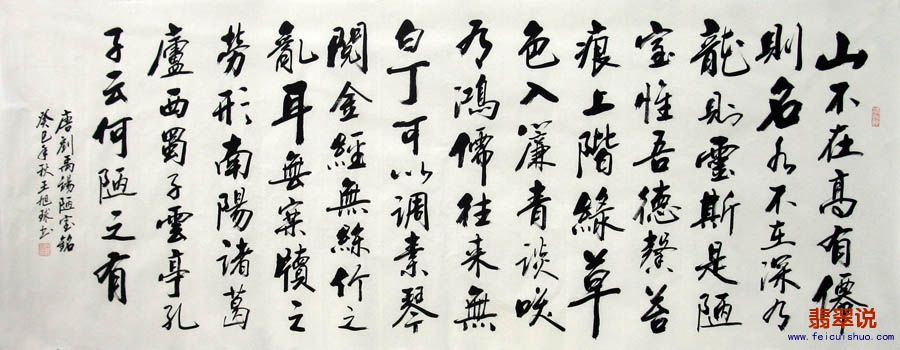 山不在高有僊
則名水不在深有
龍則靈斯是陋
室惟吾德馨苔
痕上階綠草
色入簾青談咲
有鴻儒往來無
白丁可以调素琴
閱金經無絲竹之
亂耳無案牘之
勞形南陽諸葛
廬西蜀子雲亭孔
子云何陋之有
唐劉禹锡陋室銘
癸巳年秋王旭书
翡翠说
www.feicuishuo.com